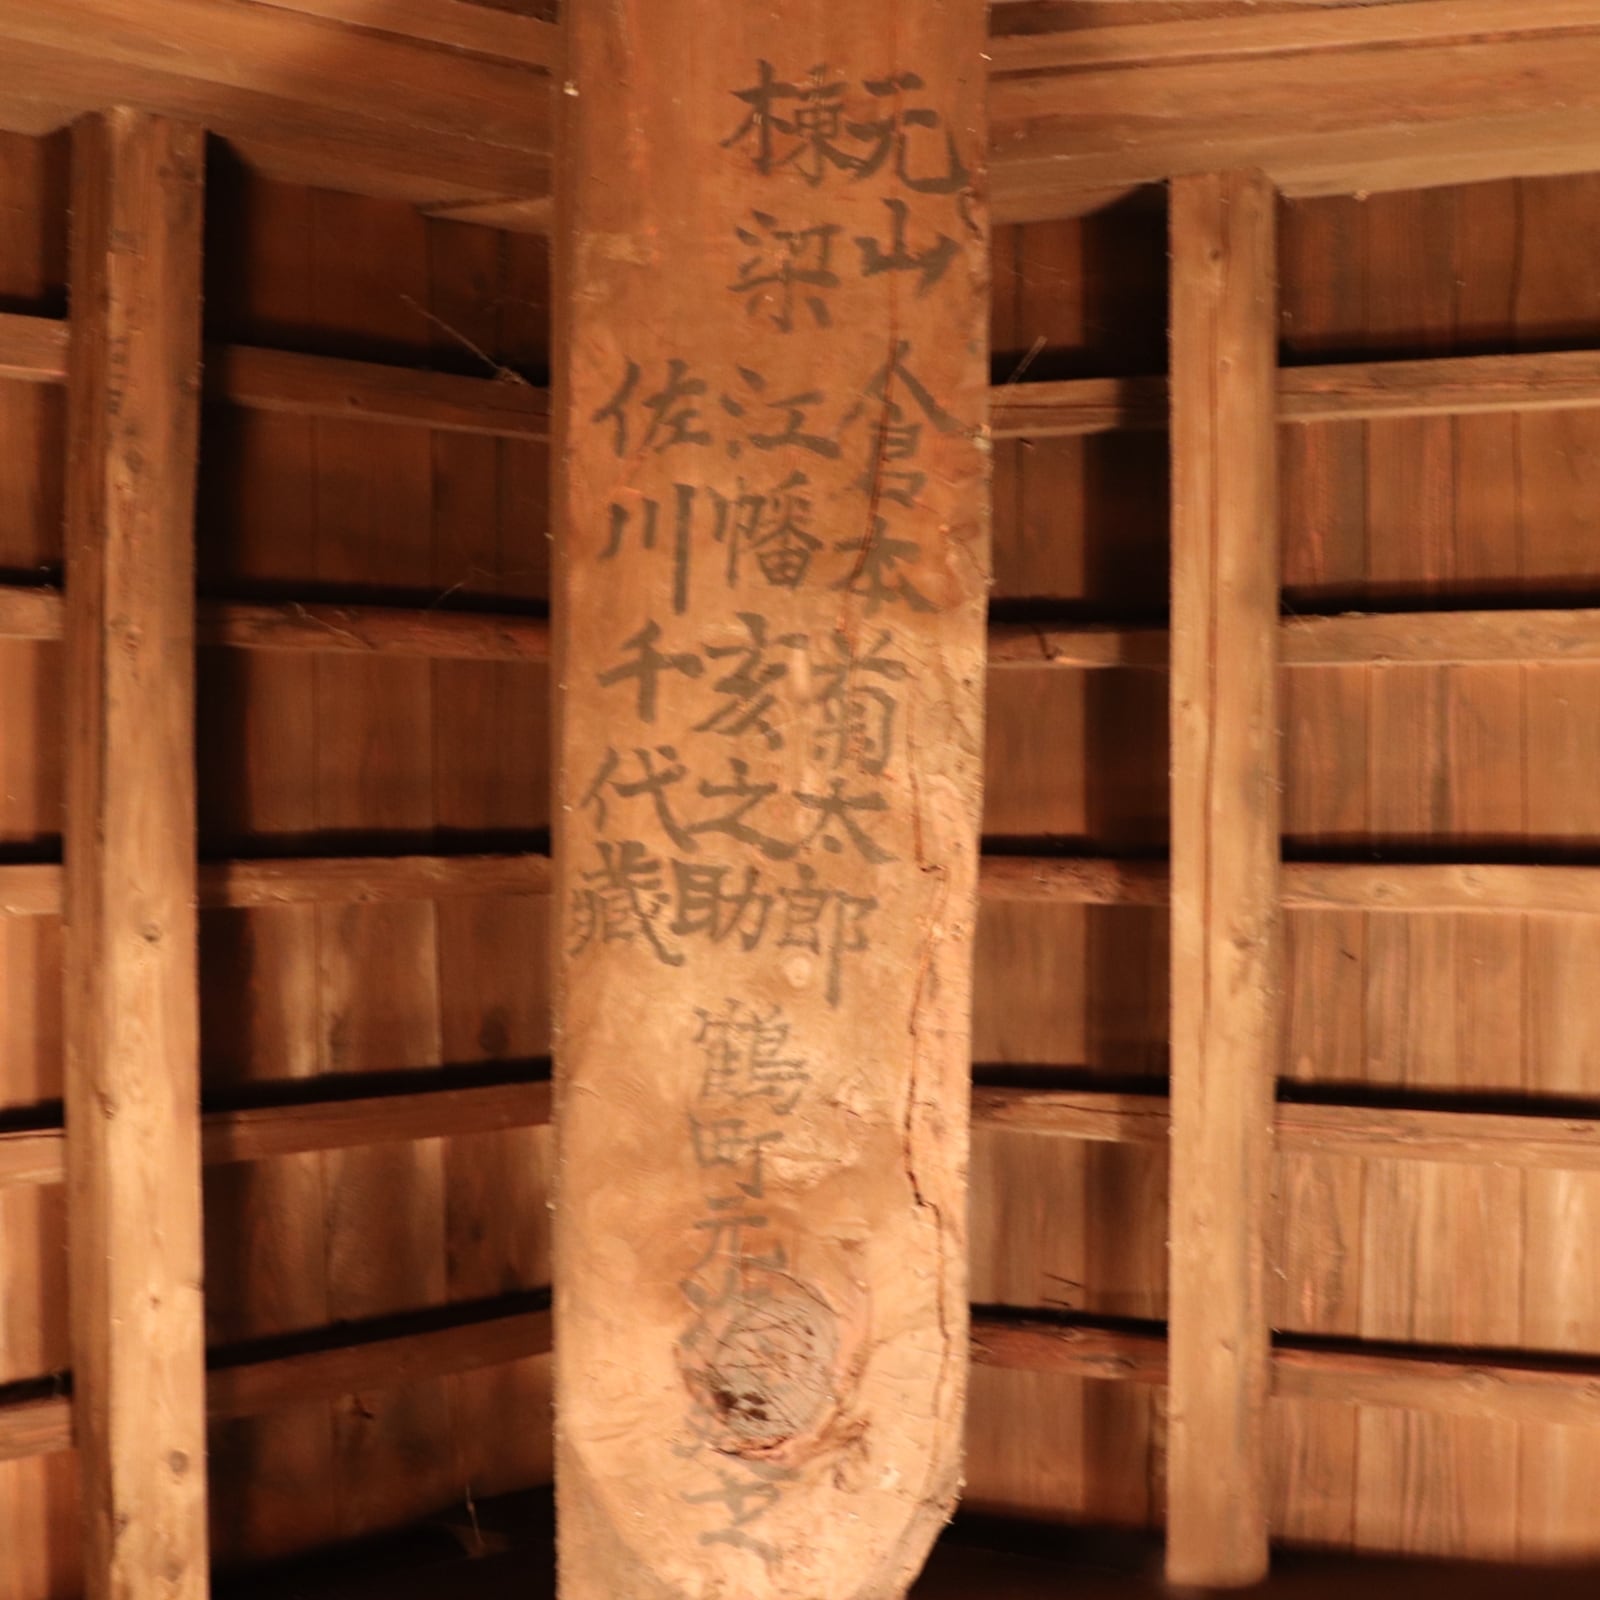 元山 倉本菊太郎
棟梁 江幡亥之助
佐川千代藏
鶴町元
之